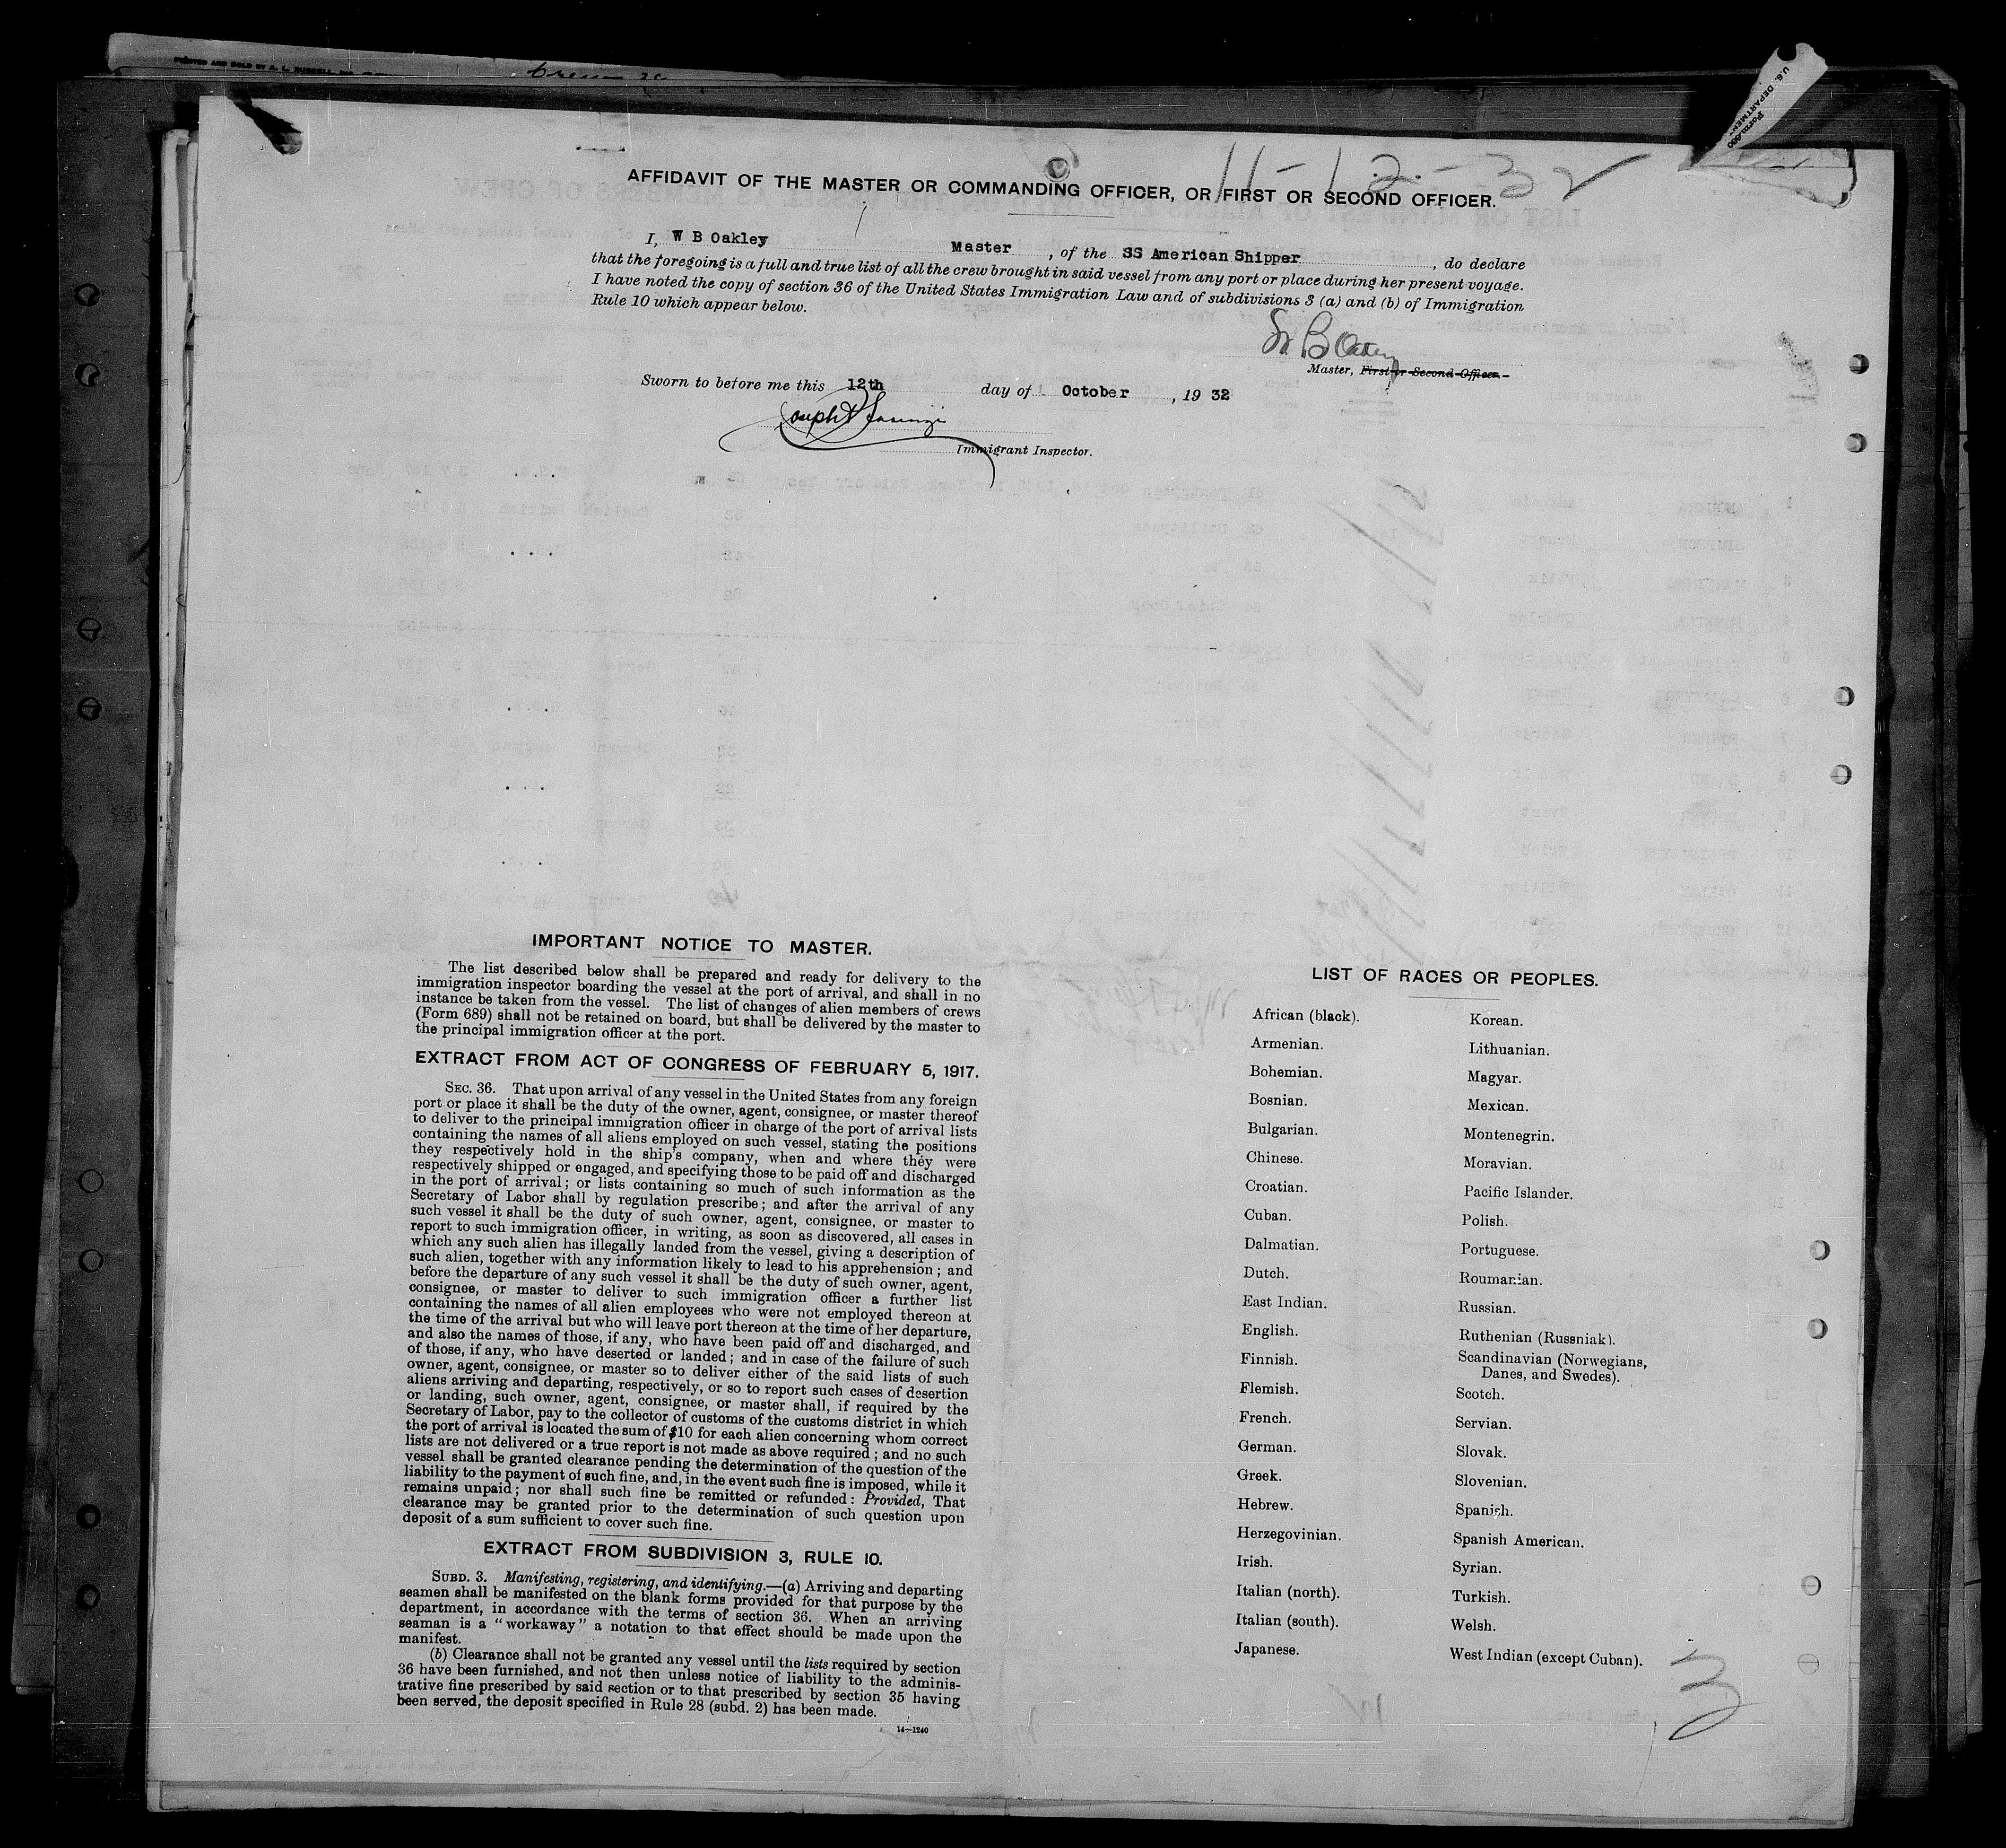 11-12-32
AFFIDAVIT OF THE MASTER OR COMMANDING OFFICER, OR FIRST OR SECOND OFFICER.
I, W B Oakley Master, of the SS American Shipper, do declare
that the foregoing is a full and true list of all the crew brought in said vessel from any port or place during her present voyage.
I have noted the copy of section 36 of the United States Immigration Law and of subdivisions 3 (a) and (b) of Immigration
Rule 10 which appear below.
W B Oakley
Master, First or Second Officer.
Sworn to before me this 12th day of October, 1932
Immigrant Inspector.
IMPORTANT NOTICE TO MASTER.
The list described below shall be prepared and ready for delivery to the
immigration inspector boarding the vessel at the port of arrival, and shall in no
instance be taken from the vessel. The list of changes of alien members of crews
(Form 689) shall not be retained on board, but shall be delivered by the master to
the principal immigration officer at the port.
EXTRACT FROM ACT OF CONGRESS OF FEBRUARY 5, 1917.
SEC. 36. That upon arrival of any vessel in the United States from any foreign
port or place it shall be the duty of the owner, agent, consignee, or master thereof
to deliver to the principal immigration officer in charge of the port of arrival lists
containing the names of all aliens employed on such vessel, stating the positions
they respectively hold in the ship's company, when and where they were
respectively shipped or engaged, and specifying those to be paid off and discharged
in the port of arrival; or lists containing so much of such information as the
Secretary of Labor shall by regulation prescribe; and after the arrival of any
such vessel it shall be the duty of such owner, agent, consignee, or master to
report to such immigration officer, in writing, as soon as discovered, all cases in
which any such alien has illegally landed from the vessel, giving a description of
such alien, together with any information likely to lead to his apprehension; and
before the departure of any such vessel it shall be the duty of such owner, agent,
consignee, or master to deliver to such immigration officer a further list
containing the names of all alien employees who were not employed thereon at
the time of the arrival but who will leave port thereon at the time of her departure,
and also the names of those, if any, who have been paid off and discharged, and
of those, if any, who have deserted or landed; and in case of the failure of such
owner, agent, consignee, or master so to deliver either of the said lists of such
aliens arriving and departing, respectively, or so to report such cases of desertion
or landing, such owner, agent, consignee, or master shall, if required by the
Secretary of Labor, pay to the collector of customs of the customs district in which
the port of arrival is located the sum of $10 for each alien concerning whom correct
lists are not delivered or a true report is not made as above required; and no such
vessel shall be granted clearance pending the determination of the question of the
liability to the payment of such fine, and, in the event such fine is imposed, while it
remains unpaid; nor shall such fine be remitted or refunded: Provided, That
clearance may be granted prior to the determination of such question upon
deposit of a sum sufficient to cover such fine.
EXTRACT FROM SUBDIVISION 3, RULE 10.
SUBD. 3. Manifesting, registering, and identifying.—(a) Arriving and departing
seamen shall be manifested on the blank forms provided for that purpose by the
department, in accordance with the terms of section 36. When an arriving
seaman is a "workaway" a notation to that effect should be made upon the
manifest.
(b) Clearance shall not be granted any vessel until the lists required by section
36 have been furnished, and not then unless notice of liability to the adminis-
trative fine prescribed by said section or to that prescribed by section 35 having
been served, the deposit specified in Rule 28 (subd. 2) has been made.
14—1240
LIST OF RACES OR PEOPLES.
African (black).
Armenian.
Bohemian.
Bosnian.
Bulgarian.
Chinese.
Croatian.
Cuban.
Dalmatian.
Dutch.
East Indian.
English.
Finnish.
Flemish.
French.
German.
Greek.
Hebrew.
Herzegovinian.
Irish.
Italian (north).
Italian (south).
Japanese.
Korean.
Lithuanian.
Magyar.
Mexican.
Montenegrin.
Moravian.
Pacific Islander.
Polish.
Portuguese.
Roumanian.
Russian.
Ruthenian (Russniak).
Scandinavian (Norwegians,
Danes, and Swedes).
Scotch.
Servian.
Slovak.
Slovenian.
Spanish.
Spanish American.
Syrian.
Turkish.
Welsh.
West Indian (except Cuban).
3